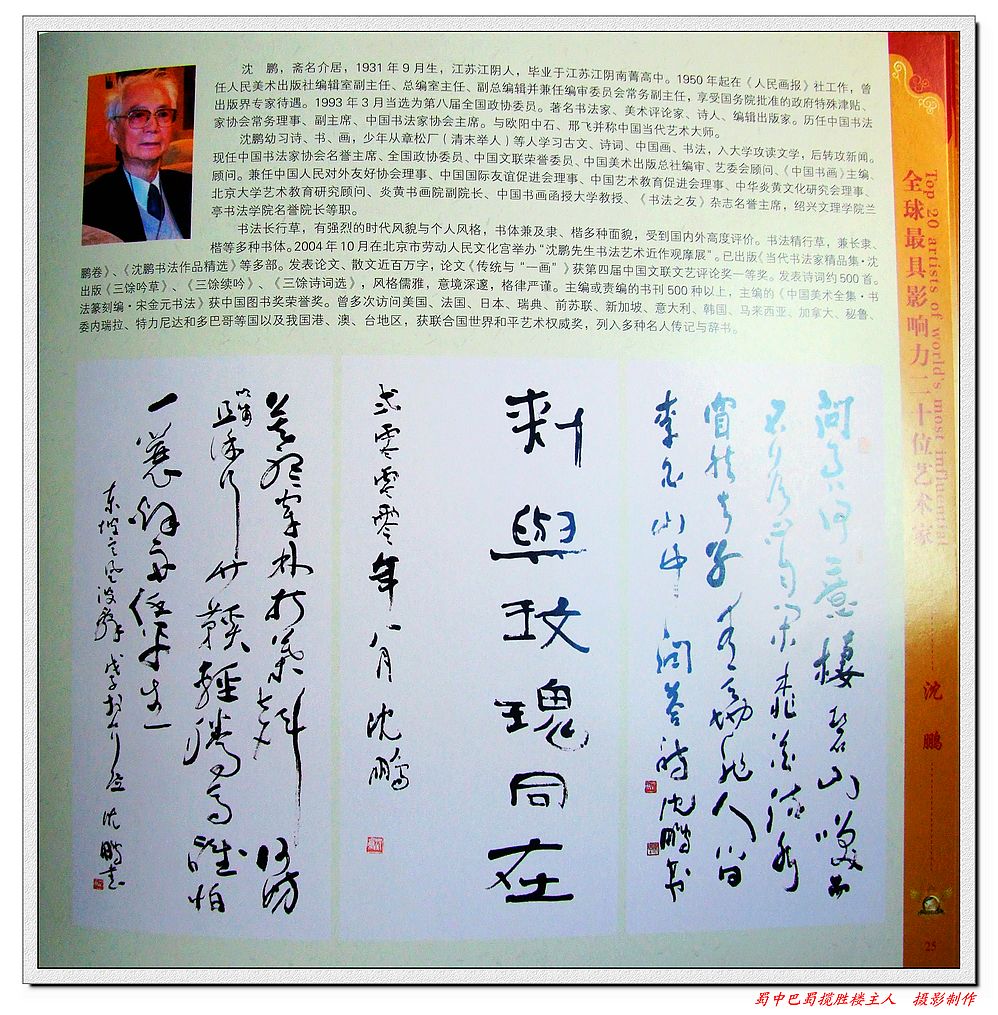 沈　鹏，斋名介居，1931年9月生，江苏江阴人，毕业于江苏江阴南菁高中。1950年起在《人民画报》社工作，曾
任人民美术出版社编辑室副主任、总编室主任、副总编辑并兼任编审委员会常务副主任，享受国务院批准的政府特殊津贴、
出版界专家待遇。1993年3月当选为第八届全国政协委员。著名书法家、美术评论家、诗人、编辑出版家。历任中国书法
家协会常务理事、副主席、中国书法家协会主席。与欧阳中石、邢飞并称中国当代艺术大师。
沈鹏幼习诗、书、画，少年从章松厂（清末举人）等人学习古文、诗词、中国画、书法，入大学攻读文学，后转攻新闻。
现任中国书法家协会名誉主席、全国政协委员、中国文联荣誉委员、中国美术出版总社编审、艺委会顾问、《中国书画》主编、
顾问。兼任中国人民对外友好协会理事、中国国际友谊促进会理事、中国艺术教育促进会理事、中华炎黄文化研究会理事、
北京大学艺术教育研究顾问、炎黄书画院副院长、中国书画函授大学教授、《书法之友》杂志名誉主席，绍兴文理学院兰
亭书法学院名誉院长等职。
书法长行草，有强烈的时代风貌与个人风格，书体兼及隶、楷多种面貌，受到国内外高度评价。书法精行草，兼长隶、
楷等多种书体。2004年10月在北京市劳动人民文化宫举办“沈鹏先生书法艺术近作观摩展”。已出版《当代书法家精品集·沈
鹏卷》、《沈鹏书法作品精选》等多部。发表论文、散文近百万字，论文《传统与“一画”》获第四届中国文联文艺评论奖一等奖。发表诗词约500首。
出版《三馀吟草》、《三馀续吟》、《三馀诗词选》，风格儒雅，意境深邃，格律严谨。主编或责编的书刊500种以上，主编的《中国美术全集·书
法篆刻编·宋金元书法》获中国图书奖荣誉奖。曾多次访问美国、法国、日本、瑞典、前苏联、新加坡、意大利、韩国、马来西亚、加拿大、秘鲁、
委内瑞拉、特力尼达和多巴哥等国以及我国港、澳、台地区，获联合国世界和平艺术权威奖，列入多种名人传记与辞书。
Top 20 artists of world's most influential
全球最具影响力二十位艺术家
沈　鹏
25
問余何意棲碧山笑而
不答心自闲桃花流水
窅然去别有天地非人间
李白山中问答诗沈鹏书
刺與玫瑰同在
弍零零零年八月沈鹏
莫听穿林打葉聲何妨
吟嘯且徐行竹杖芒鞋輕勝马誰怕
一蓑烟雨任平生
蜀中巴蜀揽胜楼主人　摄影制作